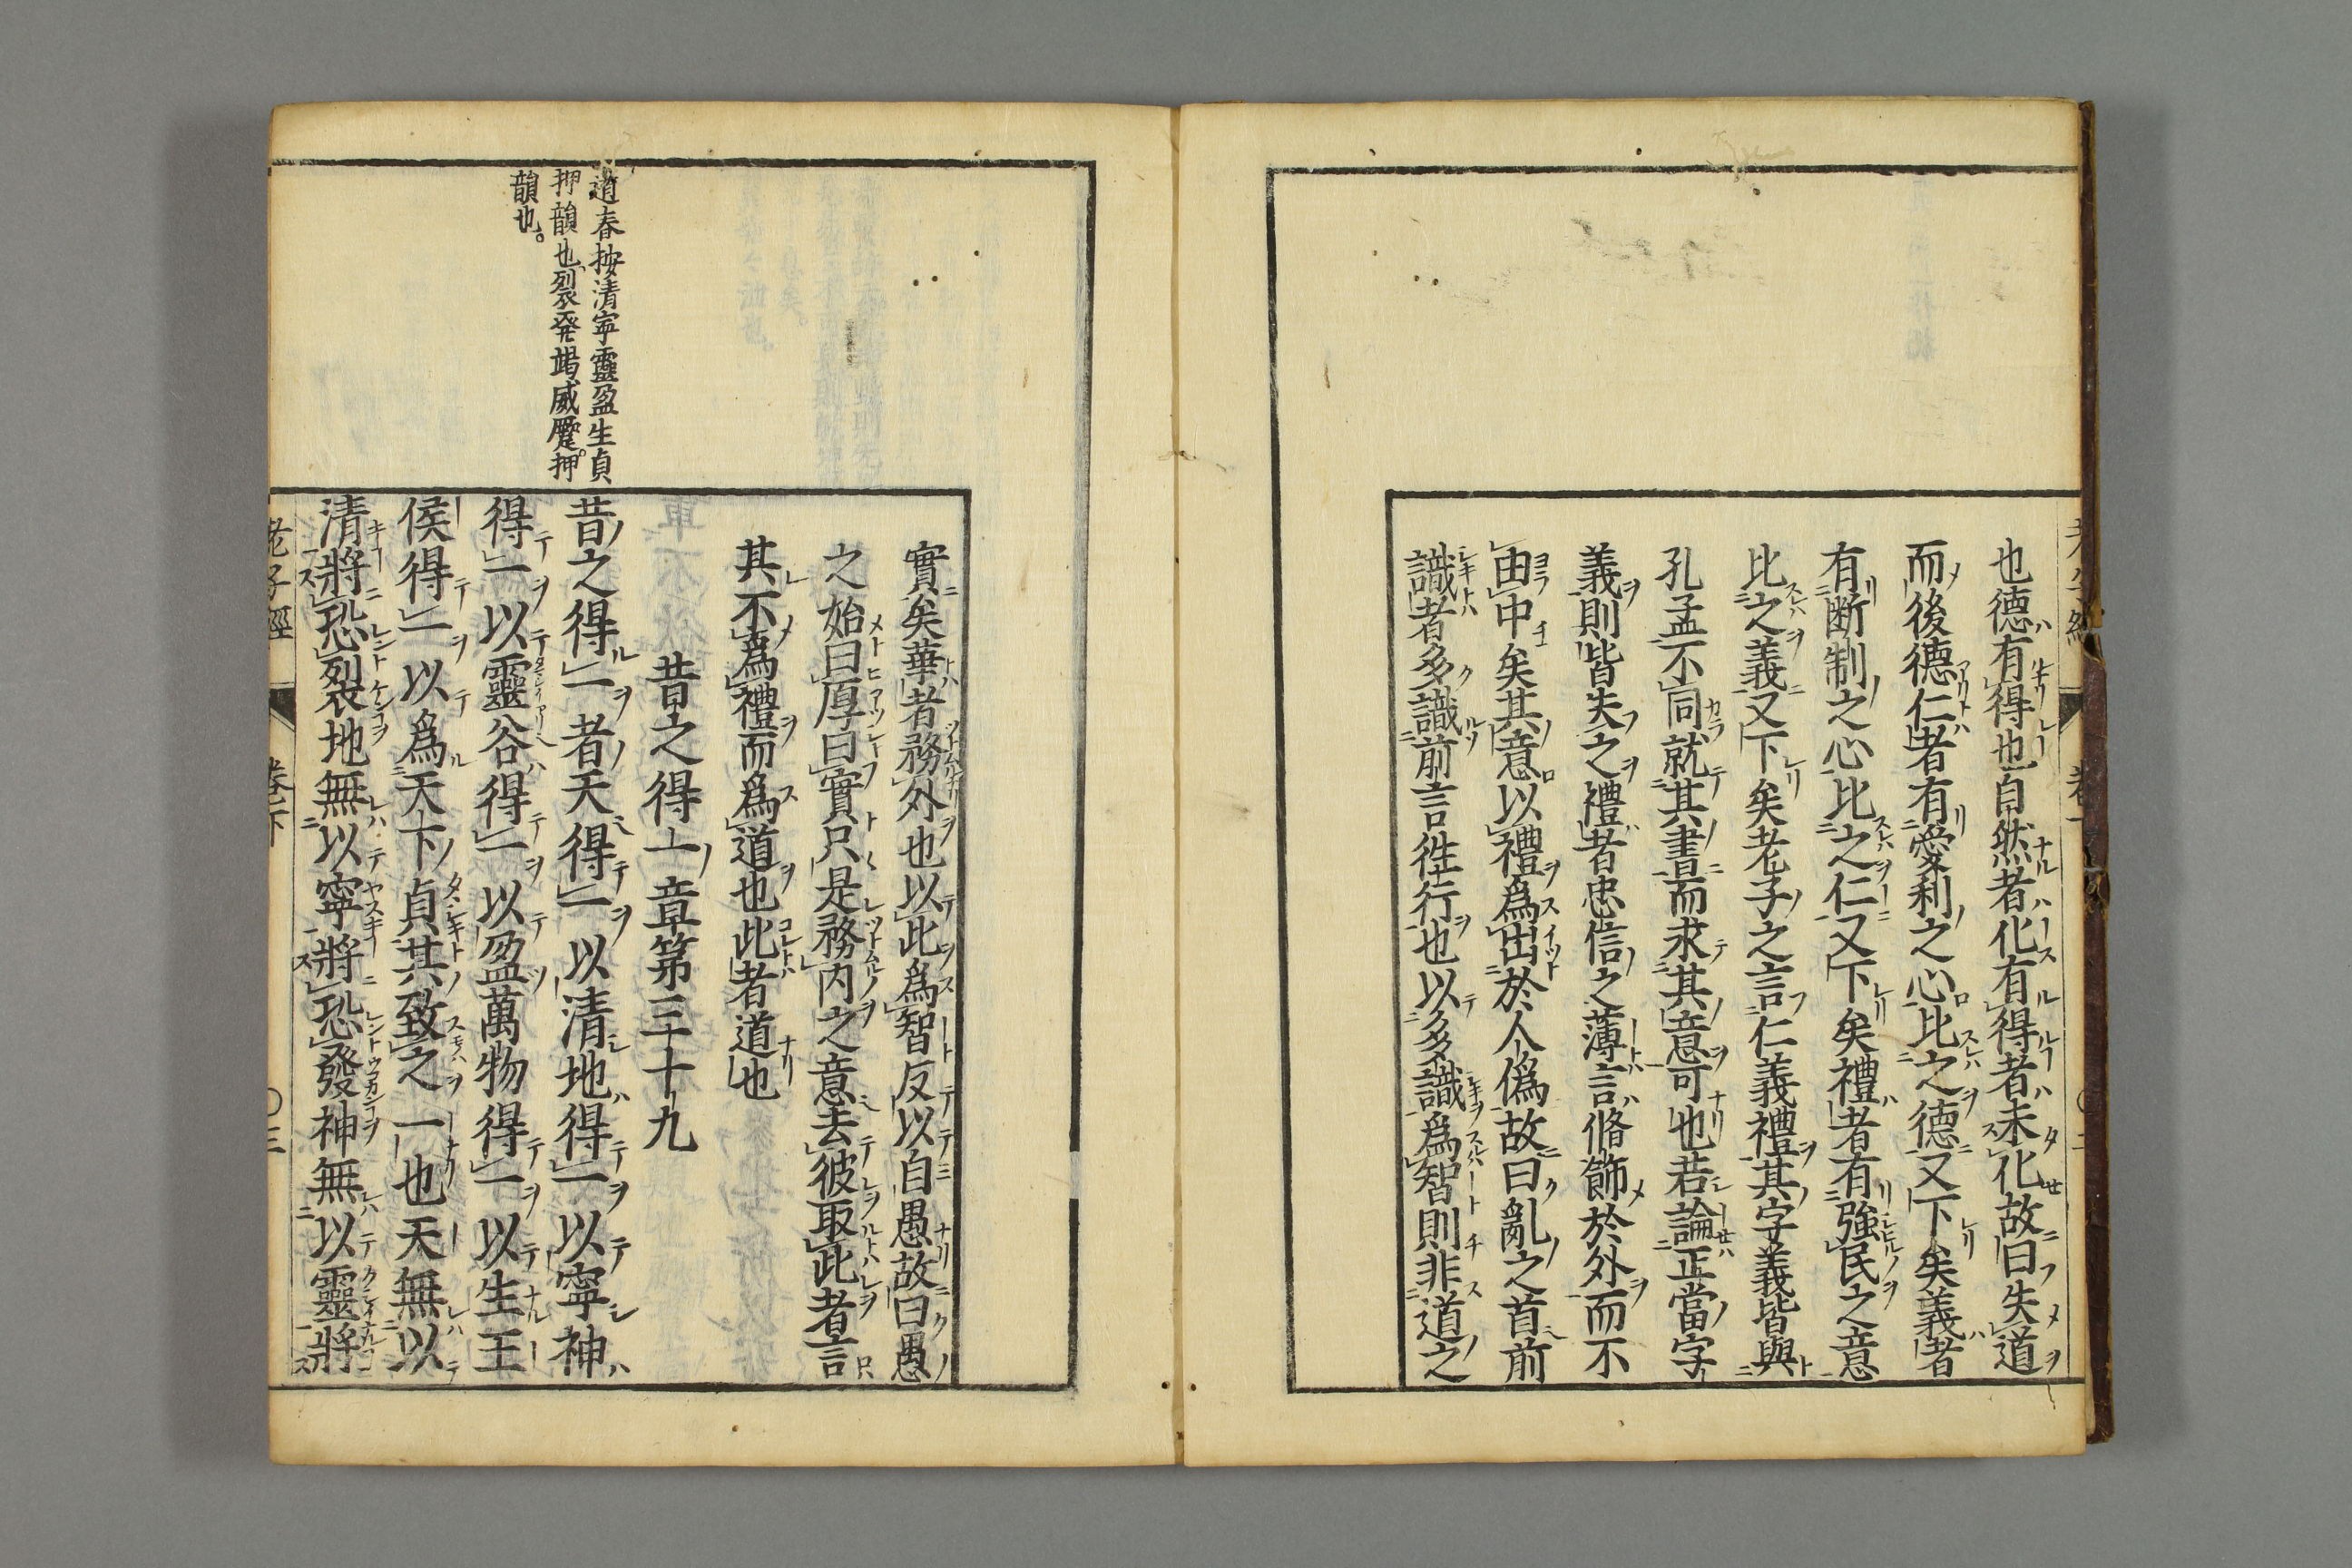 也德有得也自然者化有得者未化故曰失道
而後德仁者有愛利之心比之德又下矣義者
有断制之心比之仁又下矣禮者有強民之意
比之義又下矣老子之言仁義禮其字義皆與
孔孟不同就其書而求其意可也若論正當字
義則皆失之禮者忠信之薄言脩飾於外而不
由中矣其意以禮為出於人偽故曰亂之首前
識者多識前言徃行也以多識為智則非道之
道春按清寧靈盈生貞
押韻也裂發竭蹙押
韻也。
實矣華者務外也以此為智反以自愚故曰愚
之始曰厚曰實只是務內之意去彼取此者言
其不為禮而為道也此者道也
昔之得一章第三十九
昔之得一者天得一以清地得一以寧神
得一以靈谷得一以盈萬物得一以生王
侯得一以為天下貞其致之一也天無以
清將恐裂地無以寧將恐發神無以靈將
老子經
卷下
〇三